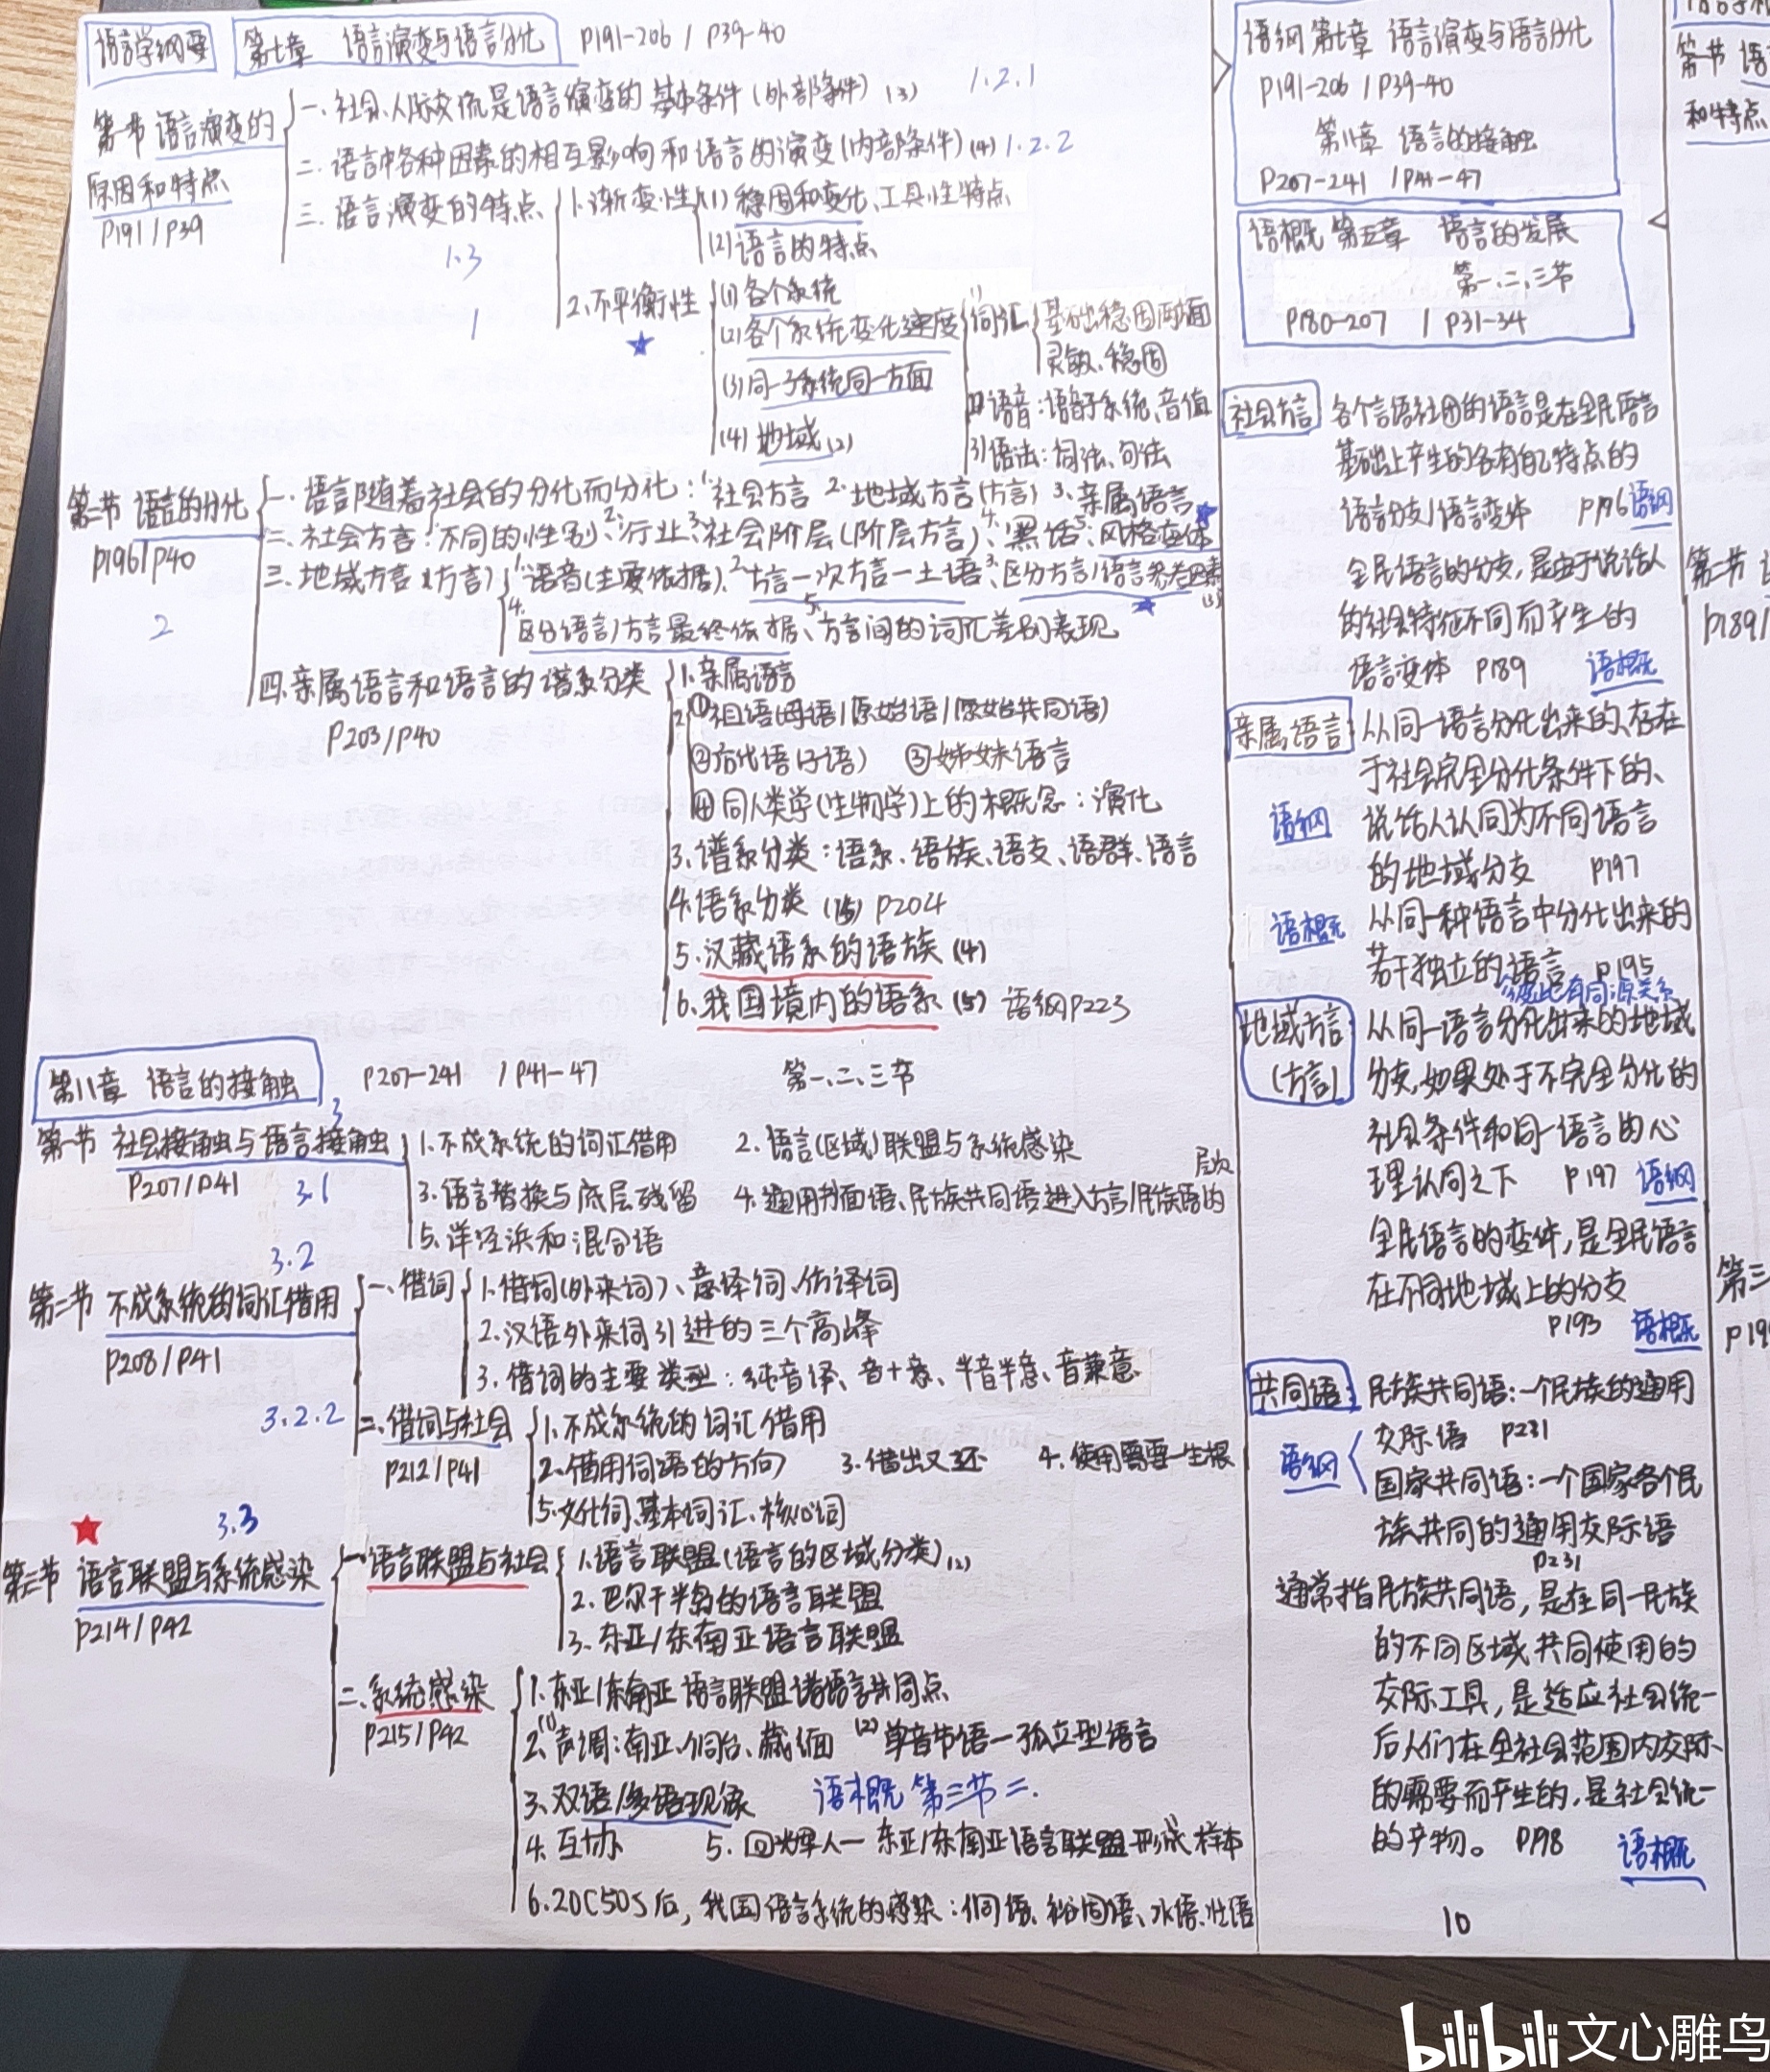 语言学纲要 第七章 语言演变与语言分化 P191-206 / P39-40
第一节 语言演变的
原因和特点
P191/P39
一、社会、人际交流是语言演变的基本条件(外部条件)(3) 1.2.1
二、语言中各种因素的相互影响和语言的演变(内部条件)(4) 1.2.2
三、语言演变的特点
1.3
1
1.渐变性 (1) 稳固和变化、工具性特点
(2)语言的特点
2.不平衡性 (1)各个系统
(2)各个系统变化速度
(3)同一子系统同一方面
(4)地域(2)
1)词汇 基础稳固两面
灵敏、稳固
2)语音:语音子系统、音值
3)语法:词法、句法
第二节 语言的分化
P196/P40
2
一、语言随着社会的分化而分化:1.社会方言 2.地域方言(方言) 3.亲属语言
二、社会方言:1.不同的性别、2.行业、3.社会阶层(阶层方言)、4.黑话、5.风格变体
三、地域方言(方言) 1.语音(主要依据)、2.方言—次方言—土语、3.区分方言/语言参考因素
4.区分语言/方言最终依据、5.方言间的词汇差别表现
四.亲属语言和语言的谱系分类
P203/P40
1.亲属语言
2.①祖语(母语/原始语/原始共同语)
②后代语(子语) ③姊妹语言
④同人类学(生物学)上的概念:演化
3.谱系分类:语系、语族、语支、语群、语言
4.语系分类 P204
5.汉藏语系的语族(4)
6.我国境内的语系(5) 语纲P223
第八章 语言的接触 P207-241 / P41-47 第一、二、三节
3
第一节 社会接触与语言接触
P207/P41 3.1
1.不成系统的词汇借用 2.语言(区域)联盟与系统感染
3.语言替换与底层残留 4.通用书面语、民族共同语进入方言/民族语的层次
5.洋泾浜和混合语
3.2
第二节 不成系统的词汇借用
P208/P41
一、借词 1.借词(外来词)、意译词、仿译词
2.汉语外来词引进的三个高峰
3.借词的主要类型:纯音译、音+意、半音半意、音兼意
3.2.2
二、借词与社会
P212/P41
1.不成系统的词汇借用
2.借用词语的方向 3.借出又还 4.使用需要—生根
5.文化词、基本词汇、核心词
3.3
第三节 语言联盟与系统感染
P214/P42
一、语言联盟与社会 1.语言联盟(语言的区域分类)(2)
2.巴尔干半岛的语言联盟
3.东亚/东南亚语言联盟
二、系统感染
P215/P42
1.东亚/东南亚语言联盟诸语言共同点
2.(1)声调:南亚、侗台、藏缅 (2)单音节语—孤立型语言
3.双语/多语现象 语概 第三节二.
4.互协 5.回辉人—东亚/东南亚语言联盟形成样本
6.20C50S后,我国语言系统的感染:侗语、裕固语、水语、壮语
语纲 第七章 语言演变与语言分化
P191-206 / P39-40
第八章 语言的接触
P207-241 / P41-47
语概 第五章 语言的发展
第一、二、三节
P180-207 / P31-34
社会方言 各个言语社团的语言是在全民语言
基础上产生的各有自己特点的
语言分支/语言变体 P196 语纲
全民语言的分支,是由于说话人
的社会特征不同而产生的
语言变体 P189 语概
亲属语言 从同一语言分化出来的、存在
于社会完全分化条件下的、
语纲 说话人认同为不同语言
的地域分支 P197
语概 从同一种语言中分化出来的
若干独立的语言 P195
彼此有同源关系
地域方言 从同一语言分化出来的地域
(方言) 分支,如果处于不完全分化的
社会条件和同一语言的心
理认同之下 P197 语纲
全民语言的变体,是全民语言
在不同地域上的分支
P193 语概
共同语: 民族共同语:一个民族的通用
交际语 P231
语纲
国家共同语:一个国家各个民
族共同的通用交际语
P231
通常指民族共同语,是在同一民族
的不同区域共同使用的
交际工具,是适应社会统一
后人们在全社会范围内交际
的需要而产生的,是社会统一
的产物。 P198 语概
10
第一节 语
和特点
第二节
P189/
第三
P19
bilibili 文心雕鸟